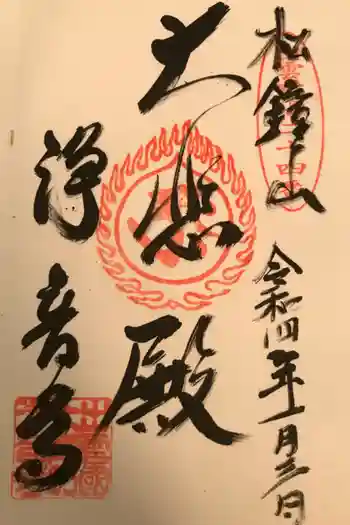 松鐘山
令和四年一月三日
大悲殿
浄音寺